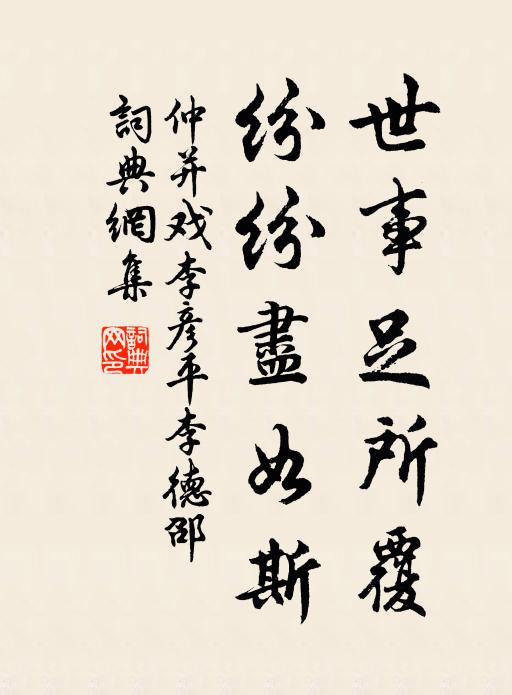 世事足所覆
紛紛盡如斯
仲并戏李彦平李德邵
詞典網集
詞典
网印